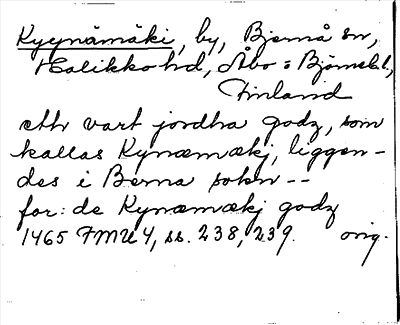 Kyynämäki, by, Bjernå sn,
Halikko hd, Åbo o Bjömeb. l.,
Finland
ett vart jordha godz, som
kallas Kynæmækj, liggen-
des i Berna sokn --
for: de Kynæmækj godz
1465 FMU 4, ss. 238, 239. orig.